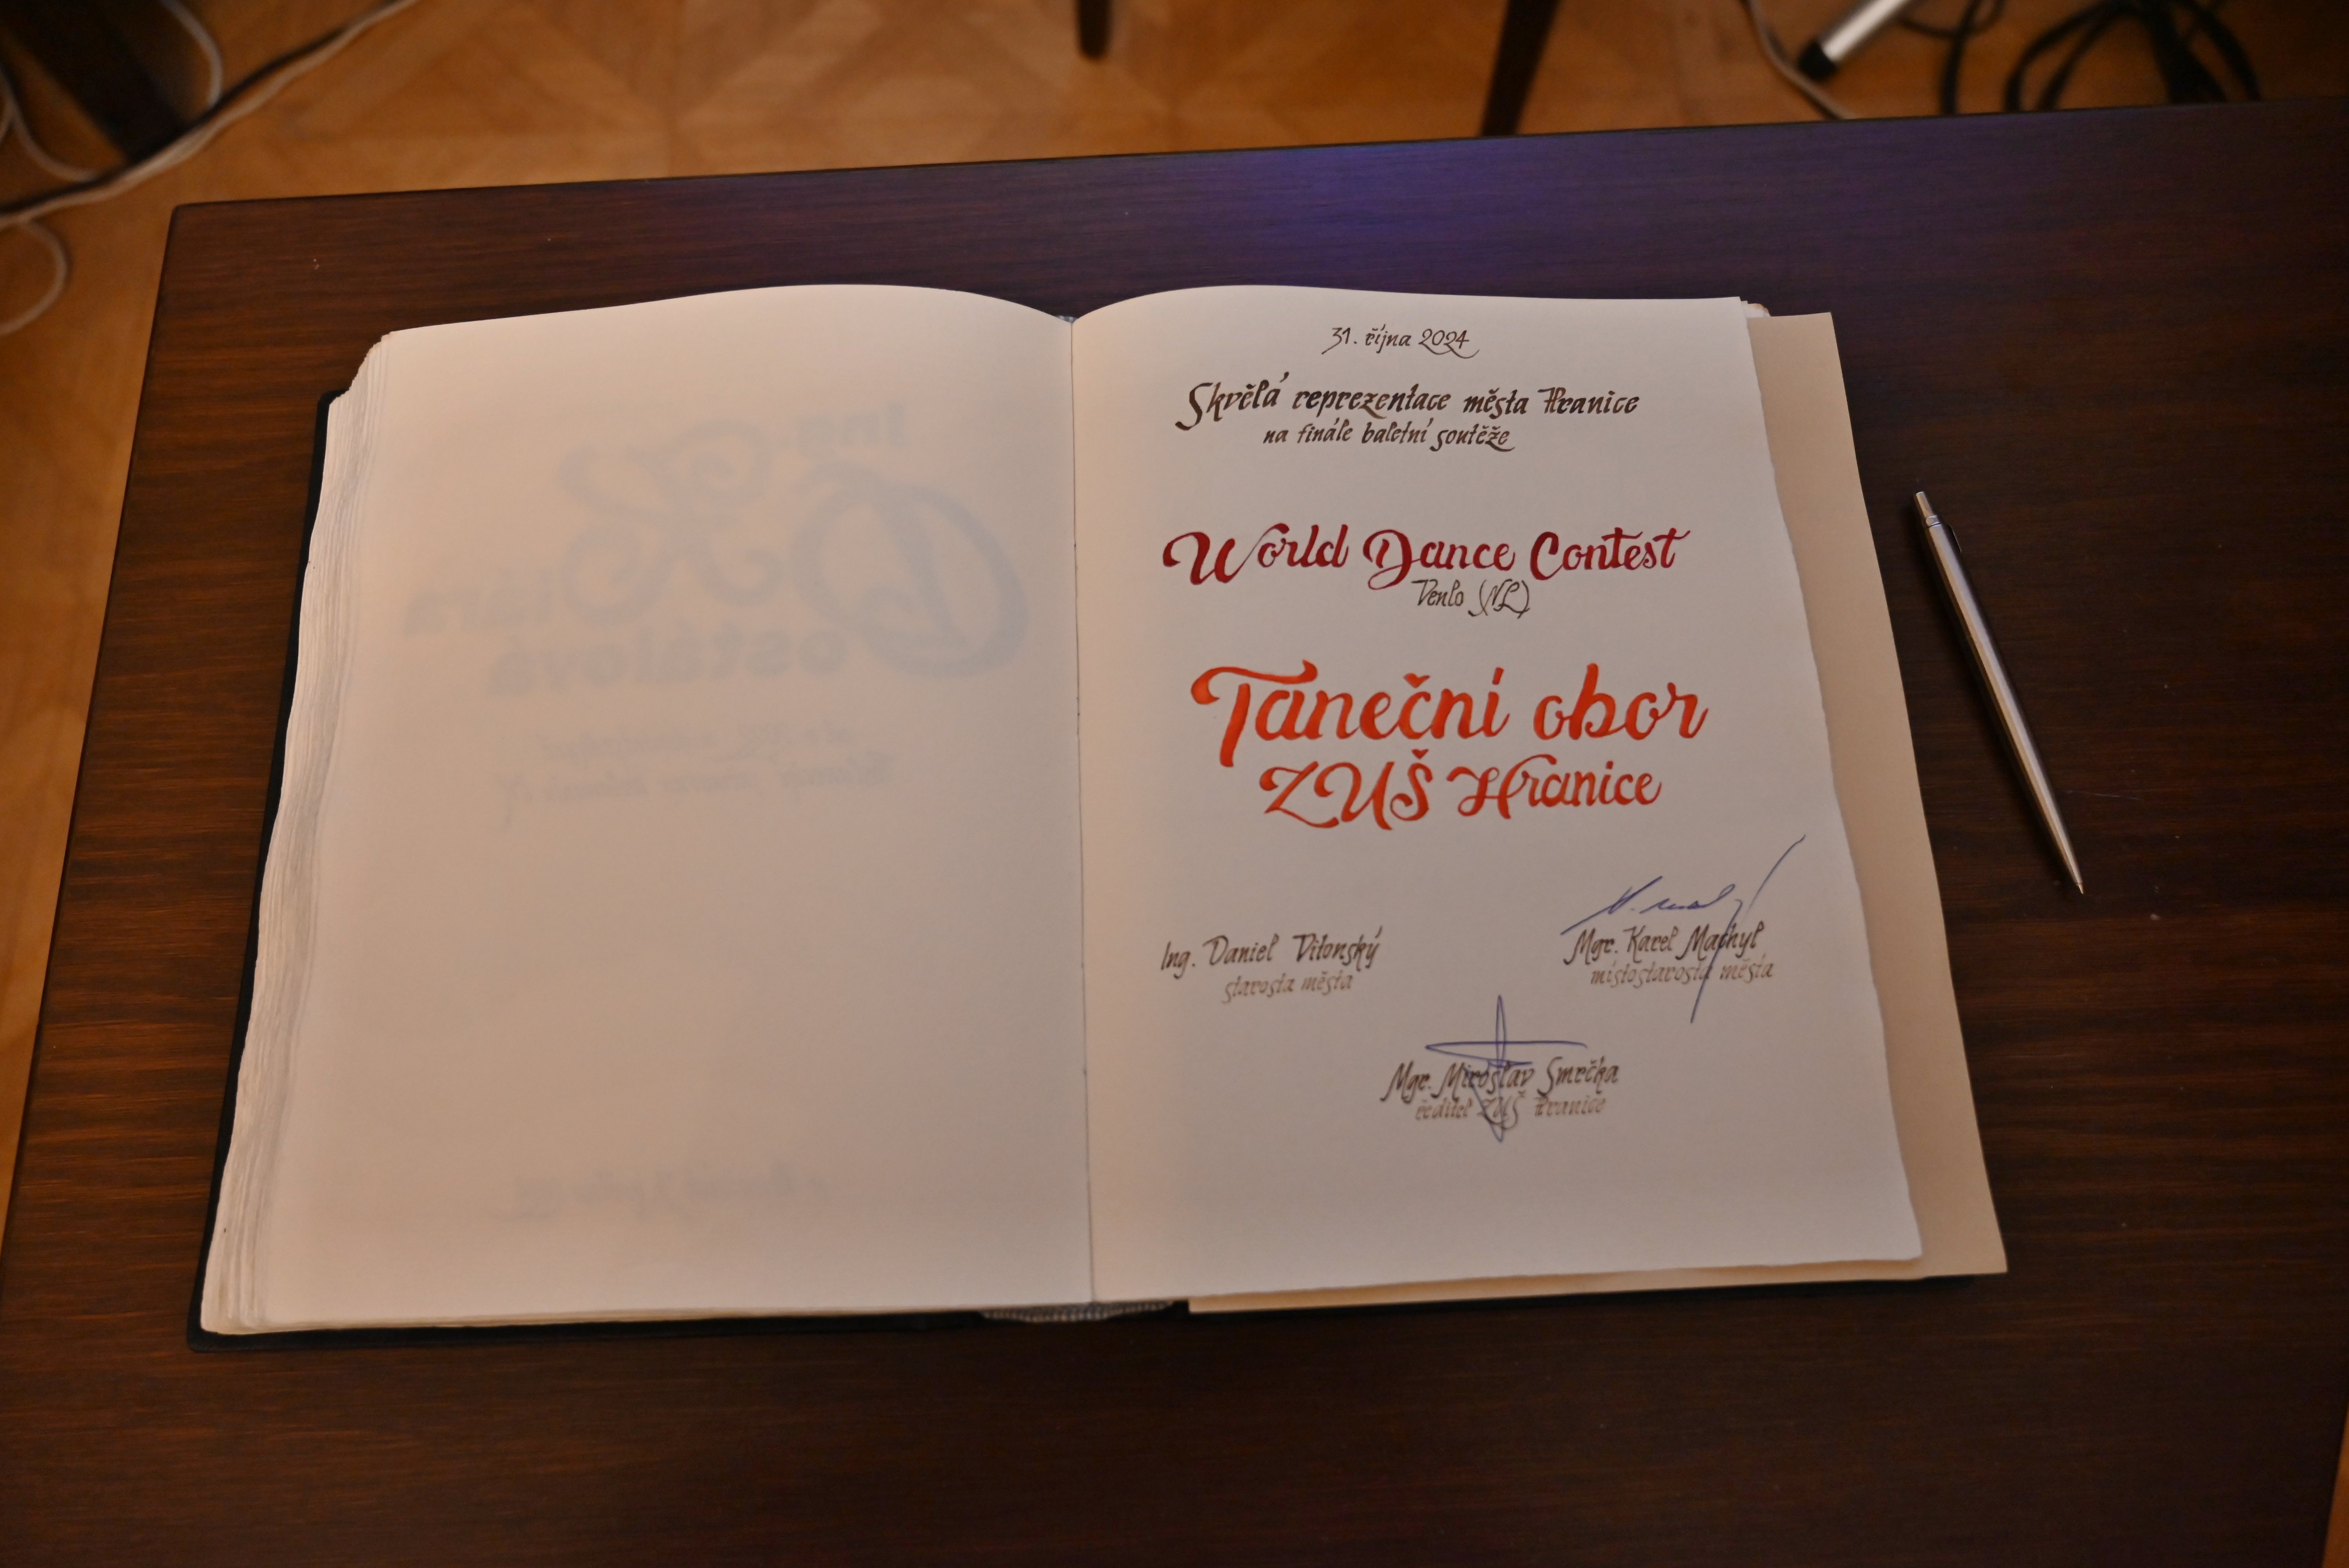 31. října 2024
Skvělá reprezentace města Hranice
na finále baletní soutěže
World Dance Contest
Venlo (NL)
Taneční obor
ZUŠ Hranice
Ing. Daniel Vitonský
starosta města
Mgr. Karel Machyl
místostarosta města
Mgr. Miroslav Smrčka
ředitel ZUŠ Hranice